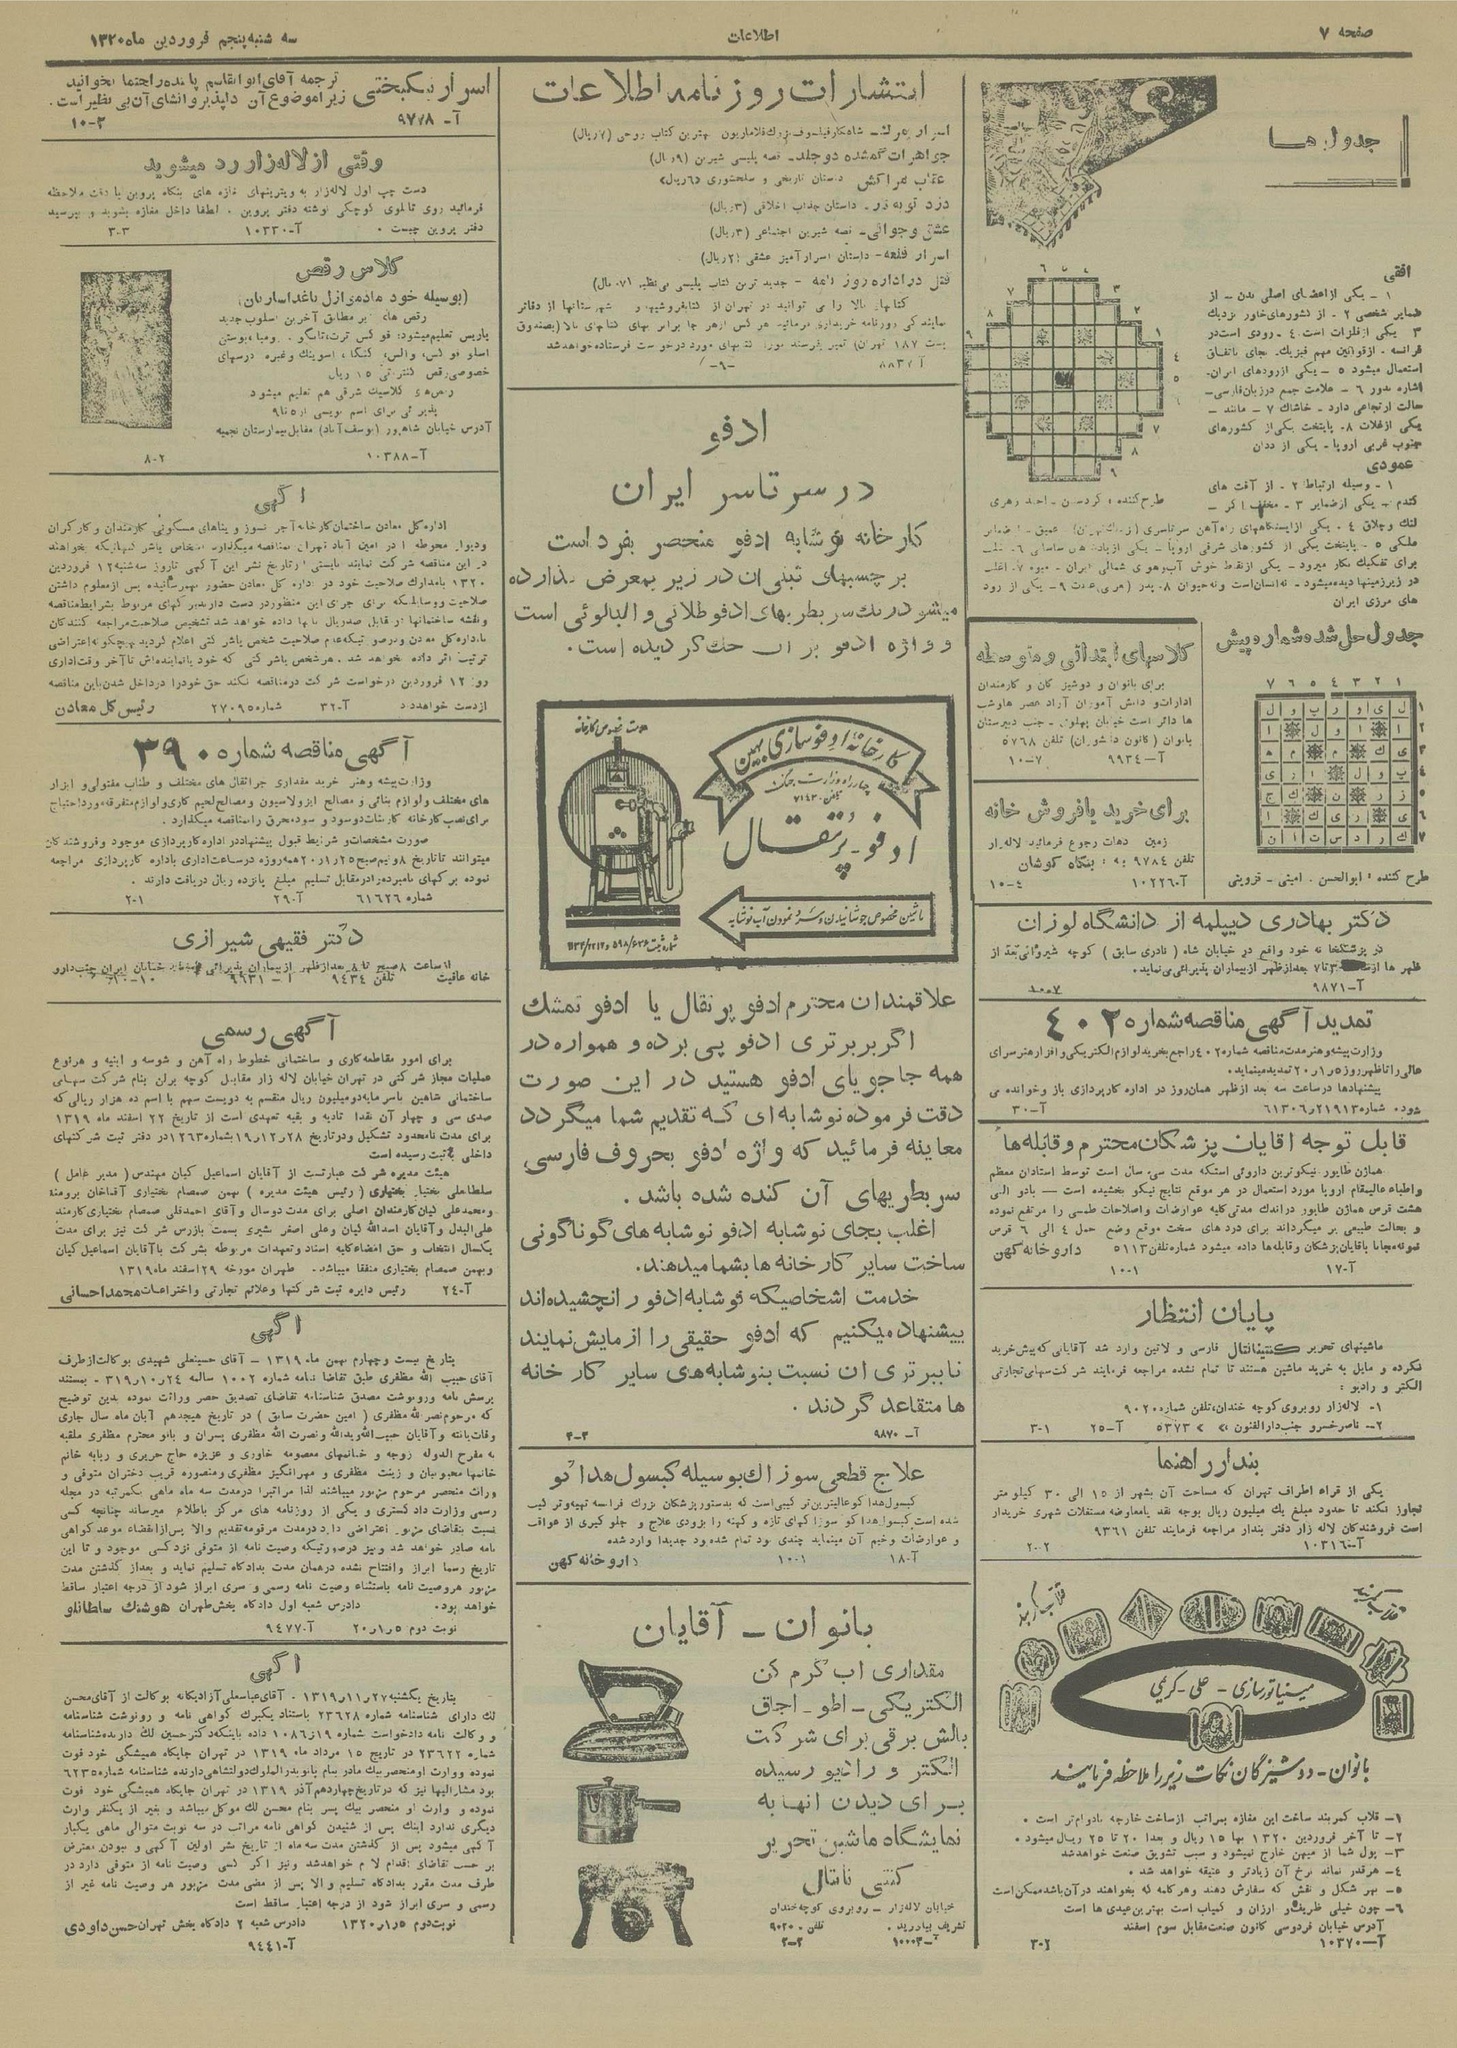 صفحه ۷
اطلاعات
سه شنبه پنجم فروردین ماه ۱۳۲۰
جدول‌ها
افقی
۱ - یکی از اعضای اصلی بدن - از
ضمایر شخصی ۲ - از کشورهای خاور نزدیک
۳ یکی از فلزات است ۴ - رودی است در
فرانسه - از قوانین مهم فیزیک بجای باتفاق
استعمال میشود ۵ - یکی از رودهای ایران -
اشاره بدور ۶ - علامت جمع در زبان فارسی -
حالت ارتجاعی دارد - خاشاک ۷ - مانند -
یکی از غلات ۸ - پایتخت یکی از کشورهای
جنوب غربی اروپا - یکی از
عمودی
۱ - وسیله ارتباط ۲ - از آفت های
گندم - یکی از ضمایر ۳ - مخفف اگر -
طرح کننده :
ملکی ۵ - پایتخت یکی از کشورهای شرقی اروپا -
برای تفکیک بکار میرود - یکی از نقاط خوش آب و هوای شمالی ایران - میوه ۷ - اغلب
در زیرزمینها دیده میشود - نه انسان است و نه حیوان ۸ - پدر (عربی) ۹ - یکی از رود
های مرزی ایران
جدول حل شده شماره پیش
۱ ۲ ۳ ۴ ۵ ۶ ۷
طرح کننده : ابوالحسن - امینی - قزوینی
کلاسهای ابتدائی و متوسطه
برای بانوان و دوشیزگان و کارمندان
ادارات و دانش آموزان آزاد عصرها و شب
ها دائر است خیابان پهلوی - جنب دبیرستان
بانوان (کانون دانشوران) تلفن ۵۷۶۸
آ-۹۹۳۴ ۷-۱۰
برای خرید یا فروش خانه
زمین دهات رجوع فرمائید لاله زار
تلفن ۹۷۸۴ به : بنگاه کوشان
آ-۱۰۲۲۶ ۴-۱۰
دکتر بهادری دیپلمه از دانشگاه لوزان
در پزشکخانه خود واقع در خیابان شاه (نادری سابق) کوچه شیروانی بعد از
ظهر ها از تا ۷ بعد از ظهر از بیماران پذیرائی می نماید.
آ-۹۸۷۱
تمدید آگهی مناقصه شماره ۴۰۲
وزارت پیشه و هنر مدت مناقصه شماره ۴۰۲ راجع بخرید لوازم الکتریکی و افزار هنرسرای
عالی را تا ظهر روز ۵ر۱ر۲۰ تمدید مینماید.
پیشنهادها در ساعت سه بعد از ظهر همان روز در اداره کارپردازی باز و خوانده می
شود. شماره ۶۱۳۰۶ر۲۱۹۱۳ آ-۳۰
قابل توجه آقایان پزشکان محترم و قابله‌ها
هماژن طایور نیکوترین داروئی استکه مدت سی سال است توسط استادان معظم
و اطباء عالیمقام اروپا مورد استعمال در هر موقع نتایج نیکو بخشیده است -
هشت قرص هماژن طایور در اندک مدتی کلیه عوارضات و اصلاحات طمسی را مرتفع نموده
و بحالت طبیعی بر میگرداند برای درد های سخت موقع وضع حمل ۴ الی ۶ قرص
نمونه مجانا بآقایان پزشکان و قابله‌ها داده میشود شماره تلفن ۵۱۱۳ داروخانه کهن
آ-۱۷ ۱-۱۰
پایان انتظار
ماشینهای تحریر کنتیننتال فارسی و لاتین وارد شد آقایانی که پیش خرید
نکرده و مایل به خرید ماشین هستند تا تمام نشده مراجعه فرمایند شرکت سهامی تجارتی
الکتر و رادیو :
۱- لاله‌زار روبروی کوچه خندان، تلفن شماره ۹۰۲۰
۲- ناصرخسرو جنب دارالفنون » » ۵۳۷۳ آ-۲۵ ۱-۳
بندار راهنما
یکی از قراء اطراف تهران که مساحت آن بشهر از ۱۵ الی ۳۰ کیلو متر
تجاوز نکند تا حدود مبلغ یک میلیون ریال بوجه نقد یا معاوضه مستغلات شهری خریدار
است فروشندگان لاله زار دفتر بندار مراجعه فرمایند تلفن ۹۳۶۱
آ-۱۰۳۱۶ ۲-۲
مینیاتورسازی - علی - کریمی
بانوان - دوشیزگان نکات زیر را ملاحظه فرمایند
۱- قلاب کمربند ساخت این مغازه بمراتب از ساخت خارجه بادوام‌تر است.
۲- تا آخر فروردین ۱۳۲۰ بها ۱۵ ریال و بعدا ۲۰ تا ۲۵ ریال میشود.
۳- پول شما از میهن خارج نمیشود و سبب تشویق صنعت خواهد شد
۴- هر قدر بماند نرخ آن زیادتر و عتیقه خواهد شد.
۵- بهر شکل و نقش که سفارش دهند و هر کلمه که بخواهند در آن باشد ممکن است
۶- چون خیلی ظریف و ارزان و کمیاب است بهترین عیدی ها است
آدرس خیابان فردوسی کانون صنعت مقابل سوم اسفند
آ-۱۰۳۷۰
انتشارات روزنامه اطلاعات
اسرار مرگ - شاهکار فیلسوف بزرگ فلاماریون بهترین کتاب روحی (۷ ریال)
جواهرات گمشده دو جلد - قصه پلیسی شیرین (۹ ریال)
عقاب مراکش داستان تاریخی و سلحشوری (۶ ریال)
دزد - داستان جذاب اخلاقی (۳ ریال)
عشق و جوانی - قصه شیرین اجتماعی (۳ ریال)
اسرار قلعه - داستان اسرارآمیز عشقی (۲ ریال)
قتل در اداره روزنامه - جدید ترین کتاب پلیسی بی‌نظیر
کتابهای بالا را می توانید در تهران از کتابفروشیها و شهرستانها از دفاتر
نمایندگی روزنامه خریداری فرمائید هر کس از هر جا برابر بهای کتابهای بالا (بصندوق
پست ۱۸۷ تهران) تمبر بفرستد فورا کتابهای مورد درخواست فرستاده خواهد شد
ادفو
در سر تاسر ایران
کارخانه نوشابه ادفو منحصر بفرد است
برچسبهای ثبتی آن در زیر بمعرض گذارده
میشود رنگ سر بطریهای ادفو طلائی و آلبالوئی است
و واژه ادفو بر آن حک گردیده است.
علامت مخصوص کارخانه
کارخانهٔ ادفوسازی بهین
چهارراه وزارت جنگ
تلفن ۷۱۴۳
ادفو - پرتقال
ماشین مخصوص جوشانیدن و سرد نمودن آب نوشابه
علاقمندان محترم ادفو پرتقال یا ادفو تمشک
اگر ببرتری ادفو پی برده و همواره در
همه جا جویای ادفو هستید در این صورت
دقت فرموده نوشابه ای که تقدیم شما میگردد
معاینه فرمائید که واژه ادفو بحروف فارسی
سر بطریهای آن کنده شده باشد.
اغلب بجای نوشابه ادفو نوشابه های گوناگونی
ساخت سایر کارخانه ها بشما میدهند.
خدمت اشخاصیکه نوشابه ادفو را نچشیده‌اند
پیشنهاد میکنیم که ادفو حقیقی را آزمایش نمایند
تا ببرتری آن نسبت بنوشابه‌های سایر کارخانه
ها متقاعد گردند.
آ-۹۸۷۰
علاج قطعی سوزاک بوسیله کپسول هداکو
کپسول هداکو عالیترین ترکیبی است که بدستور پزشکان بزرگ فرانسه تهیه و ترکیب
شده است کپسول هداکو سوزاکهای تازه و کهنه را بزودی علاج و جلوگیری از عواقب
و عوارضات وخیم آن مینماید چندی بود تمام شده بود جدیدا وارد شده
آ-۱۸ ۱-۱۰ داروخانه کهن
بانوان - آقایان
مقداری آب گرم کن
الکتریکی - اطو - اجاق
بالش برقی برای شرکت
الکتر و رادیو رسیده
برای دیدن آنها به
نمایشگاه ماشین تحریر
کنتی ننتال
خیابان لاله‌زار - روبروی کوچه خندان
تشریف بیاورید. تلفن ۹۰۲۰
آ-۱۰۰۰۳ ۲-۳
اسرار نیکبختی ترجمه آقای ابوالقاسم پاینده را حتما بخوانید
زیرا موضوع آن دلپذیر و انشای آن بی نظیر است.
آ-۹۷۷۸ ۲-۱۰
وقتی از لاله‌زار رد میشوید
دست چپ اول لاله‌زار به ویترینهای مغازه های بنگاه پروین با دقت ملاحظه
فرمائید روی تابلوی کوچکی نوشته دفتر پروین. لطفا داخل مغازه بشوید و بپرسید
دفتر پروین چیست. آ-۱۰۳۳۰ ۳-۳
کلاس رقص
(بوسیله خود مادموازل باغداساریان)
رقص های بر مطابق آخرین اسلوب جدید
پاریس تعلیم میشود: فوکس ترت، تانگو، رومبا، بوستن
اسلو فوکس، والس، کنگا، اسوینگ و غیره درسهای
خصوصی رقص ۱۵ ریال
رقص‌های کلاسیک شرقی هم تعلیم میشود
پذیرائی برای اسم نویسی از ۵ تا ۹
آدرس خیابان شاهپور (یوسف آباد) مقابل بیمارستان نجمیه
آ-۱۰۳۸۸ ۲-۸
آگهی
اداره کل معادن ساختمان کارخانه آجر نسوز و بناهای مسکونی کارمندان و کارگران
و دیوار محوطه را در امین آباد تهران بمناقصه میگذارد اشخاص یا شرکتهائیکه بخواهند
در این مناقصه شرکت نمایند بایستی از تاریخ نشر این آگهی تا روز سه‌شنبه ۱۲ فروردین
۱۳۲۰ با مدارک صلاحیت خود در اداره کل معادن حضور بهمرسانیده پس از معلوم داشتن
صلاحیت و وسایلیکه برای اجرای این منظور در دست دارند برگهای مربوط بشرایط مناقصه
و نقشه ساختمانها در مقابل صد ریال بآنها داده خواهد شد تشخیص صلاحیت مراجعه کنندگان
با اداره کل معادن و در صورتیکه عدم صلاحیت شخص یا شرکتی اعلام گردید بهیچگونه اعتراضی
ترتیب اثر داده نخواهد شد. هر شخص یا شرکتی که خود یا نماینده‌اش تا آخر وقت اداری
روز ۱۲ فروردین درخواست شرکت در مناقصه نکند حق خود را در داخل شدن باین مناقصه
از دست خواهد داد آ-۳۲ شماره ۲۷۰۹۵ رئیس کل معادن
آگهی مناقصه شماره ۳۹۰
وزارت پیشه و هنر خرید مقداری جراثقال های مختلف و طناب مفتولی و ابزار
های مختلف و لوازم بنائی و مصالح ایزولاسیون و مصالح لحیم کاری و لوازم متفرقه مورد احتیاج
برای نصب کارخانه کارستات دوسود و سود محرق را بمناقصه میگذارد.
صورت مشخصات و شرایط قبول پیشنهاد در اداره کارپردازی موجود و فروشندگان
میتوانند تا تاریخ ۸ و نیم صبح ۲۵ر۱ر۲۰ همه روزه در ساعات اداری باداره کارپردازی مراجعه
نموده برگهای نامبرده را در مقابل تسلیم مبلغ پانزده ریال دریافت دارند.
شماره ۶۱۶۲۶ آ-۲۹ ۱-۲
دکتر فقیهی شیرازی
خانه عافیت تلفن ۹۴۳۴
آگهی رسمی
برای امور مقاطعه کاری و ساختمانی خطوط راه آهن و شوسه و ابنیه و هر نوع
عملیات مجاز شرکتی در تهران خیابان لاله زار مقابل کوچه بران بنام شرکت سهامی
ساختمانی شاهین با سرمایه دو میلیون ریال منقسم به دویست سهم با اسم ده هزار ریالی که
صدی سی و چهار آن نقدا تادیه و بقیه تعهدی است از تاریخ ۲۲ اسفند ماه ۱۳۱۹
برای مدت نامحدود تشکیل و در تاریخ ۲۸ر۱۲ر۱۹ بشماره ۱۲۶۳ در دفتر ثبت شرکتهای
داخلی ثبت رسیده است
هیئت مدیره شرکت عبارتست از آقایان اسماعیل کیان مهندس (مدیر عامل)
سلطانعلی بختیار بختیاری (رئیس هیئت مدیره) بهمن صمصام بختیاری آقاخان برومند
و محمدعلی کیان کارمندان اصلی برای مدت دو سال و آقای احمدقلی صمصام بختیاری کارمند
علی‌البدل و آقایان اسدالله کیان و علی اصغر بشیری بسمت بازرس شرکت نیز برای مدت
یکسال انتخاب و حق امضاء کلیه اسناد و تعهدات مربوطه بشرکت با آقایان اسماعیل کیان
و بهمن صمصام بختیاری متفقا میباشد. طهران مورخه ۲۹ اسفند ماه ۱۳۱۹
آ-۲۴ رئیس دایره ثبت شرکتها و علائم تجارتی و اختراعات محمد احسانی
آگهی
بتاریخ بیست و چهارم بهمن ماه ۱۳۱۹ - آقای حسینعلی شهیدی بوکالت از طرف
آقای حبیب الله مظفری طبق تقاضا نامه شماره ۱۰۰۲ ساله ۲۴ر۱۰ر۳۱۹ بمستند
پرسش نامه و رونوشت مصدق شناسنامه تقاضای تصدیق حصر وراثت نموده بدین توضیح
که مرحوم نصرالله مظفری (امین حضرت سابق) در تاریخ هیجدهم آبان ماه سال جاری
وفات یافته و آقایان حبیب‌الله و یدالله و نصرت الله مظفری پسران و بانو محترم مظفری ملقبه
به مفرح الدوله زوجه و خانمهای معصومه خاوری و عزیزه حاج حریری و ربابه خانم
خانمها محبوبیان و زینت مظفری و مهرانگیز مظفری و منصوره قریب دختران متوفی و
وراث منحصر مرحوم مزبور میباشند لذا مراتب را در مدت سه ماه ماهی یکمرتبه در مجله
رسمی وزارت دادگستری و یکی از روزنامه های مرکز باطلاع میرساند چنانچه کسی
نسبت بتقاضای مزبور اعتراضی دارد در مدت مرقومه تقدیم والا پس از انقضاء موعد گواهی
نامه صادر خواهد شد و نیز در صورتیکه وصیت نامه از متوفی نزد کسی موجود و تا این
تاریخ رسما ابراز و افتتاح نشده در همان مدت بدادگاه تسلیم نماید و بعد از گذشتن مدت
مزبور هر وصیت نامه باستثناء وصیت نامه رسمی و سری ابراز شود از درجه اعتبار ساقط
خواهد بود. دادرس شعبه اول دادگاه بخش طهران هوشنگ سلطانلو
نوبت دوم ۵ر۱ر۲۰ آ-۹۴۷۷
آگهی
بتاریخ یکشنبه ۲۷ر۱۱ر۱۳۱۹ - آقای عباسعلی آزادیگانه بوکالت از آقای محسن
لک دارای شناسنامه شماره ۲۳۶۲۸ باستناد یکبرگ گواهی نامه و رونوشت شناسنامه
و وکالت نامه دادخواست شماره ۱۰۸۶ر۱۹ داده باینکه دکتر حسین لک دارنده شناسنامه
شماره ۲۳۶۲۲ در تاریخ ۱۵ مرداد ماه ۱۳۱۹ در تهران جایگاه همیشگی خود فوت
نموده و وارث او منحصر بیک مادر بنام بانو بدرالملوک دولتشاهی دارنده شناسنامه شماره ۶۲۳۵
بود مشارالیها نیز که در تاریخ چهاردهم آذر ۱۳۱۹ در تهران جایگاه همیشگی خود فوت
نموده و وارث او منحصر بیک پسر بنام محسن لک موکل میباشد و بغیر از یکنفر وارث
دیگری ندارد اینک پس از شنیدن گواهی نامه مراتب در سه نوبت متوالی ماهی یکبار
آگهی میشود پس از گذشتن مدت سه ماه از تاریخ نشر اولین آگهی و نبودن معترض
بر حسب تقاضای اقدام لازم خواهد شد و نیز اگر کسی وصیت نامه از متوفی دارد در
ظرف مدت مقرر بدادگاه تسلیم والا پس از مضی مدت مزبور هر وصیت نامه غیر از
رسمی و سری ابراز شود از درجه اعتبار ساقط است
نوبت دوم ۵ر۱ر۱۳۲۰ دادرس شعبه ۲ دادگاه بخش تهران حسن داودی
آ-۹۴۴۱